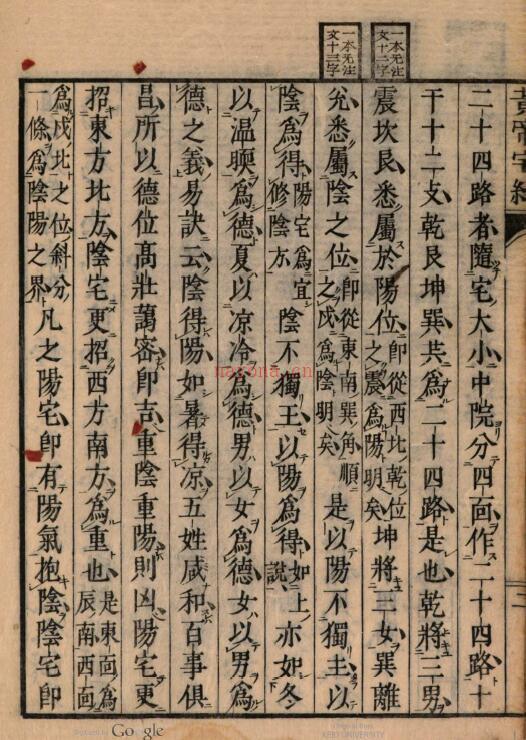 一本无注
文十二字
一本无注
文十三字
二十四路者隨宅大小中院分四面作二十四路十
干十二攴乾艮坤巽共爲二十四路是也乾將三男
震坎艮悉屬於陽位即從西北乾位之震爲陽明矣坤將三女巽離
兊悉屬陰之位即從東南巽角順之戌爲陰明矣是以陽不獨王以
陰爲得陽宅爲宜修陰方陰不獨王以陽爲得如上説亦如冬
以温暖爲德夏以凉冷爲德男以女爲德女以男爲
德之義易訣云陰得陽如暑得凉五姓咸和百事俱
昌所以德位高壯藹密即吉重陰重陽則凶陽宅更
招東方北方陰宅更招西方南方爲重也是東面爲辰南西面
爲戌北之位斜分一條爲陰陽之界凡之陽宅即有陽氣抱陰陰宅即
nayona.cn
Digitized by Google
Original from
KEIO UNIVERSITY